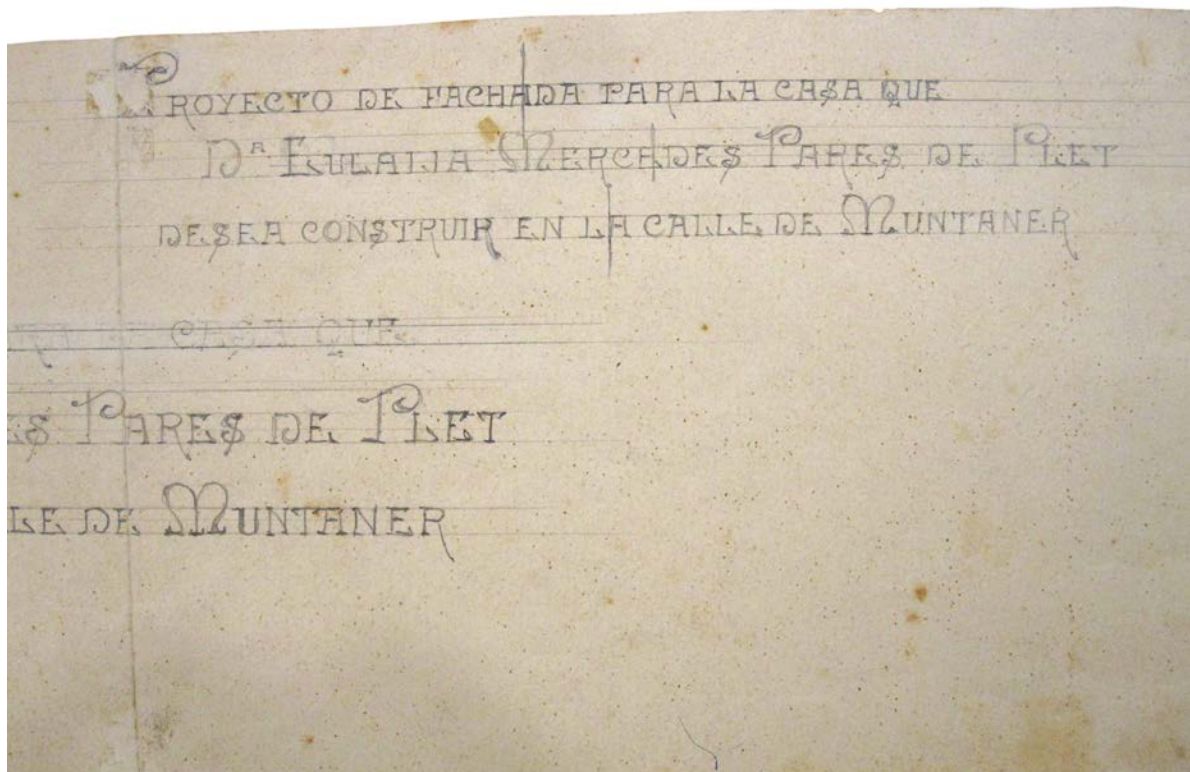 PROYECTO DE FACHADA PARA LA CASA QUE
Dª EULALIA MERCEDES PARES DE PLET
DESEA CONSTRUIR EN LA CALLE DE MUNTANER
CASA QUE
ES PARES DE PLET
LE DE MUNTANER